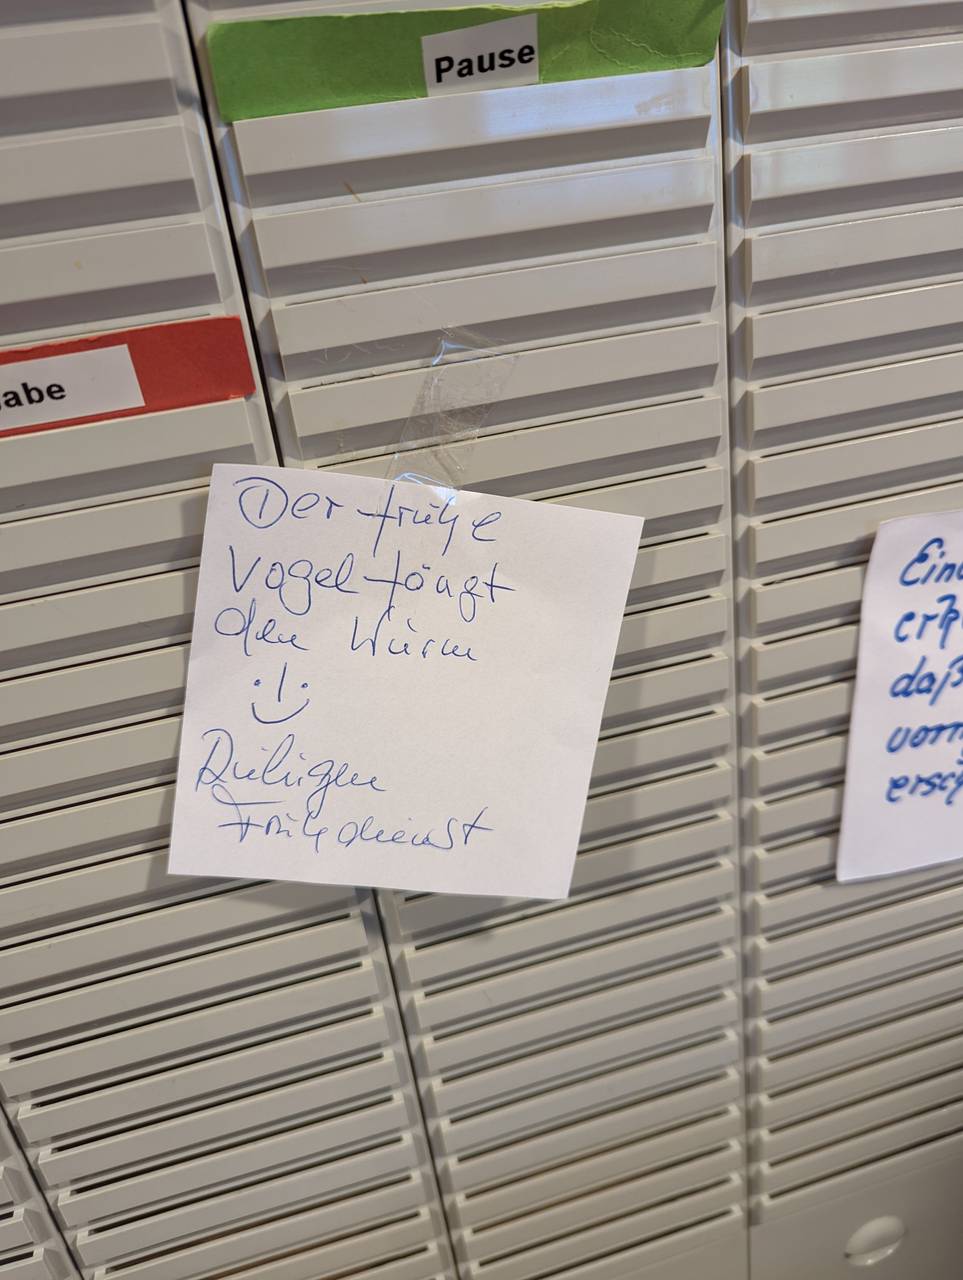 Pause
abe
Der frühe
Vogel fängt
den Wurm
Ruhigen
Frühdienst
Ein
erk
daß
vorm
ersch